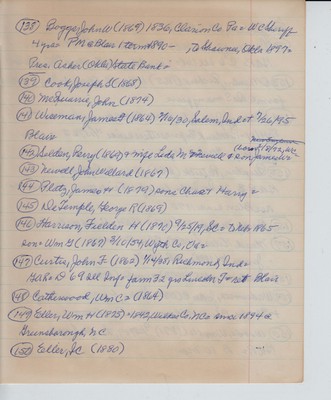 (138) Boggs, John W (1869) 1836, Clarion Co Pa = W C Sheriff
4 yrs PM @ Blair 1 term 1890 - , D Shawnee, Okla 1897 =
Pres. Asher (Okla) State Bank =
(139) Cook, Joseph G (1868)
(140) McQuarrie, John (1874)
(141) Weesman, James F (1864) Salem, Ind st 7/26, 1915
Blair
(142) Selden, Perry (1860) & wife Leda M & son James W =
(143) Newell, John Willard (1867)
(144) Peltz, James H (1874) sons Chas & Harry =
(145) DeTemple, George R (1869)
(146) Harrison, Fielden H (1870) 9/25/19, SC = D Nebr 1865
son = Wm G (1867) 2/10/54, Wyth Co, Va =
(147) Curtis, John F (1862) Richmond, Ind =
GaR = D '69 farm 72 yrs Lincoln T = ret Blair
(148) Catherwood, Wm C = (1864)
(149) Eller, Wm H (1875) = 1842, Wilkes Co, NC = since 1894 @
Greensborough, NC
(150) Eller, JC (1880)